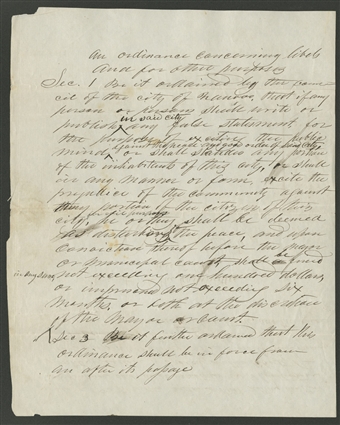 An ordinance concerning libels
and for other purposes
Sec. 1 Be it ordained by the coun
cil of the city of Nauvoo, that if any
person or persons shall write or
in said city
publish any false statement for
the purpose of exciting the public
mind against the peace and good order of said city
or shall slander any portion
of the inhabitants of this city, or shall
in any manner or form, excite the
prejudice of the community against
any portion of the citizens of this
city for evil purposes
he or they shall be deemed
disturbing the peace, and upon
conviction thereof before the mayor
or municipal court shall be fined
in any sum,
not exceeding five hundred dollars
or imprisoned not exceeding six
months, or both at the discretion
of the Mayor or Court.
Sec 3 Be it further ordained that this
ordinance shall be in force from
an after its passage